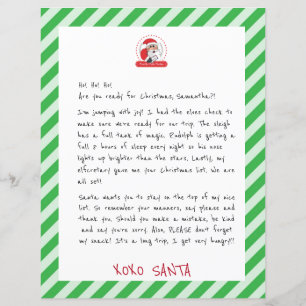 Ho! Ho! Ho!
Are you ready for Christmas, Samantha?!
I'm jumping with joy! I had the elves check to
make sure we're ready for our trip. The sleigh
has a full tank of magic. Rudolph is getting a
full 8 hours of sleep every night so his nose
lights up brighter than the stars. Lastly, my
elfcretary gave me your Christmas list, we are
all set!
Santa wants you to stay on the top of my nice
list. So remember your manners, say please and
thank you. Should you make a mistake, be kind
and say you're sorry. Also, PLEASE don't forget
my snack! It's a long trip, I get very hungry!!!
XOXO SANTA